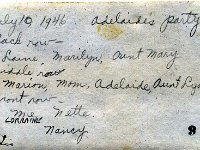 uly 10, 1946. Adelaide's party
ack row—
Laine, Marilyn, Aunt Mary
iddle row
Marion, Mom, Adelaide, Aunt Ly
ront row—
Me, Nette,
LORRAINE
Nancy